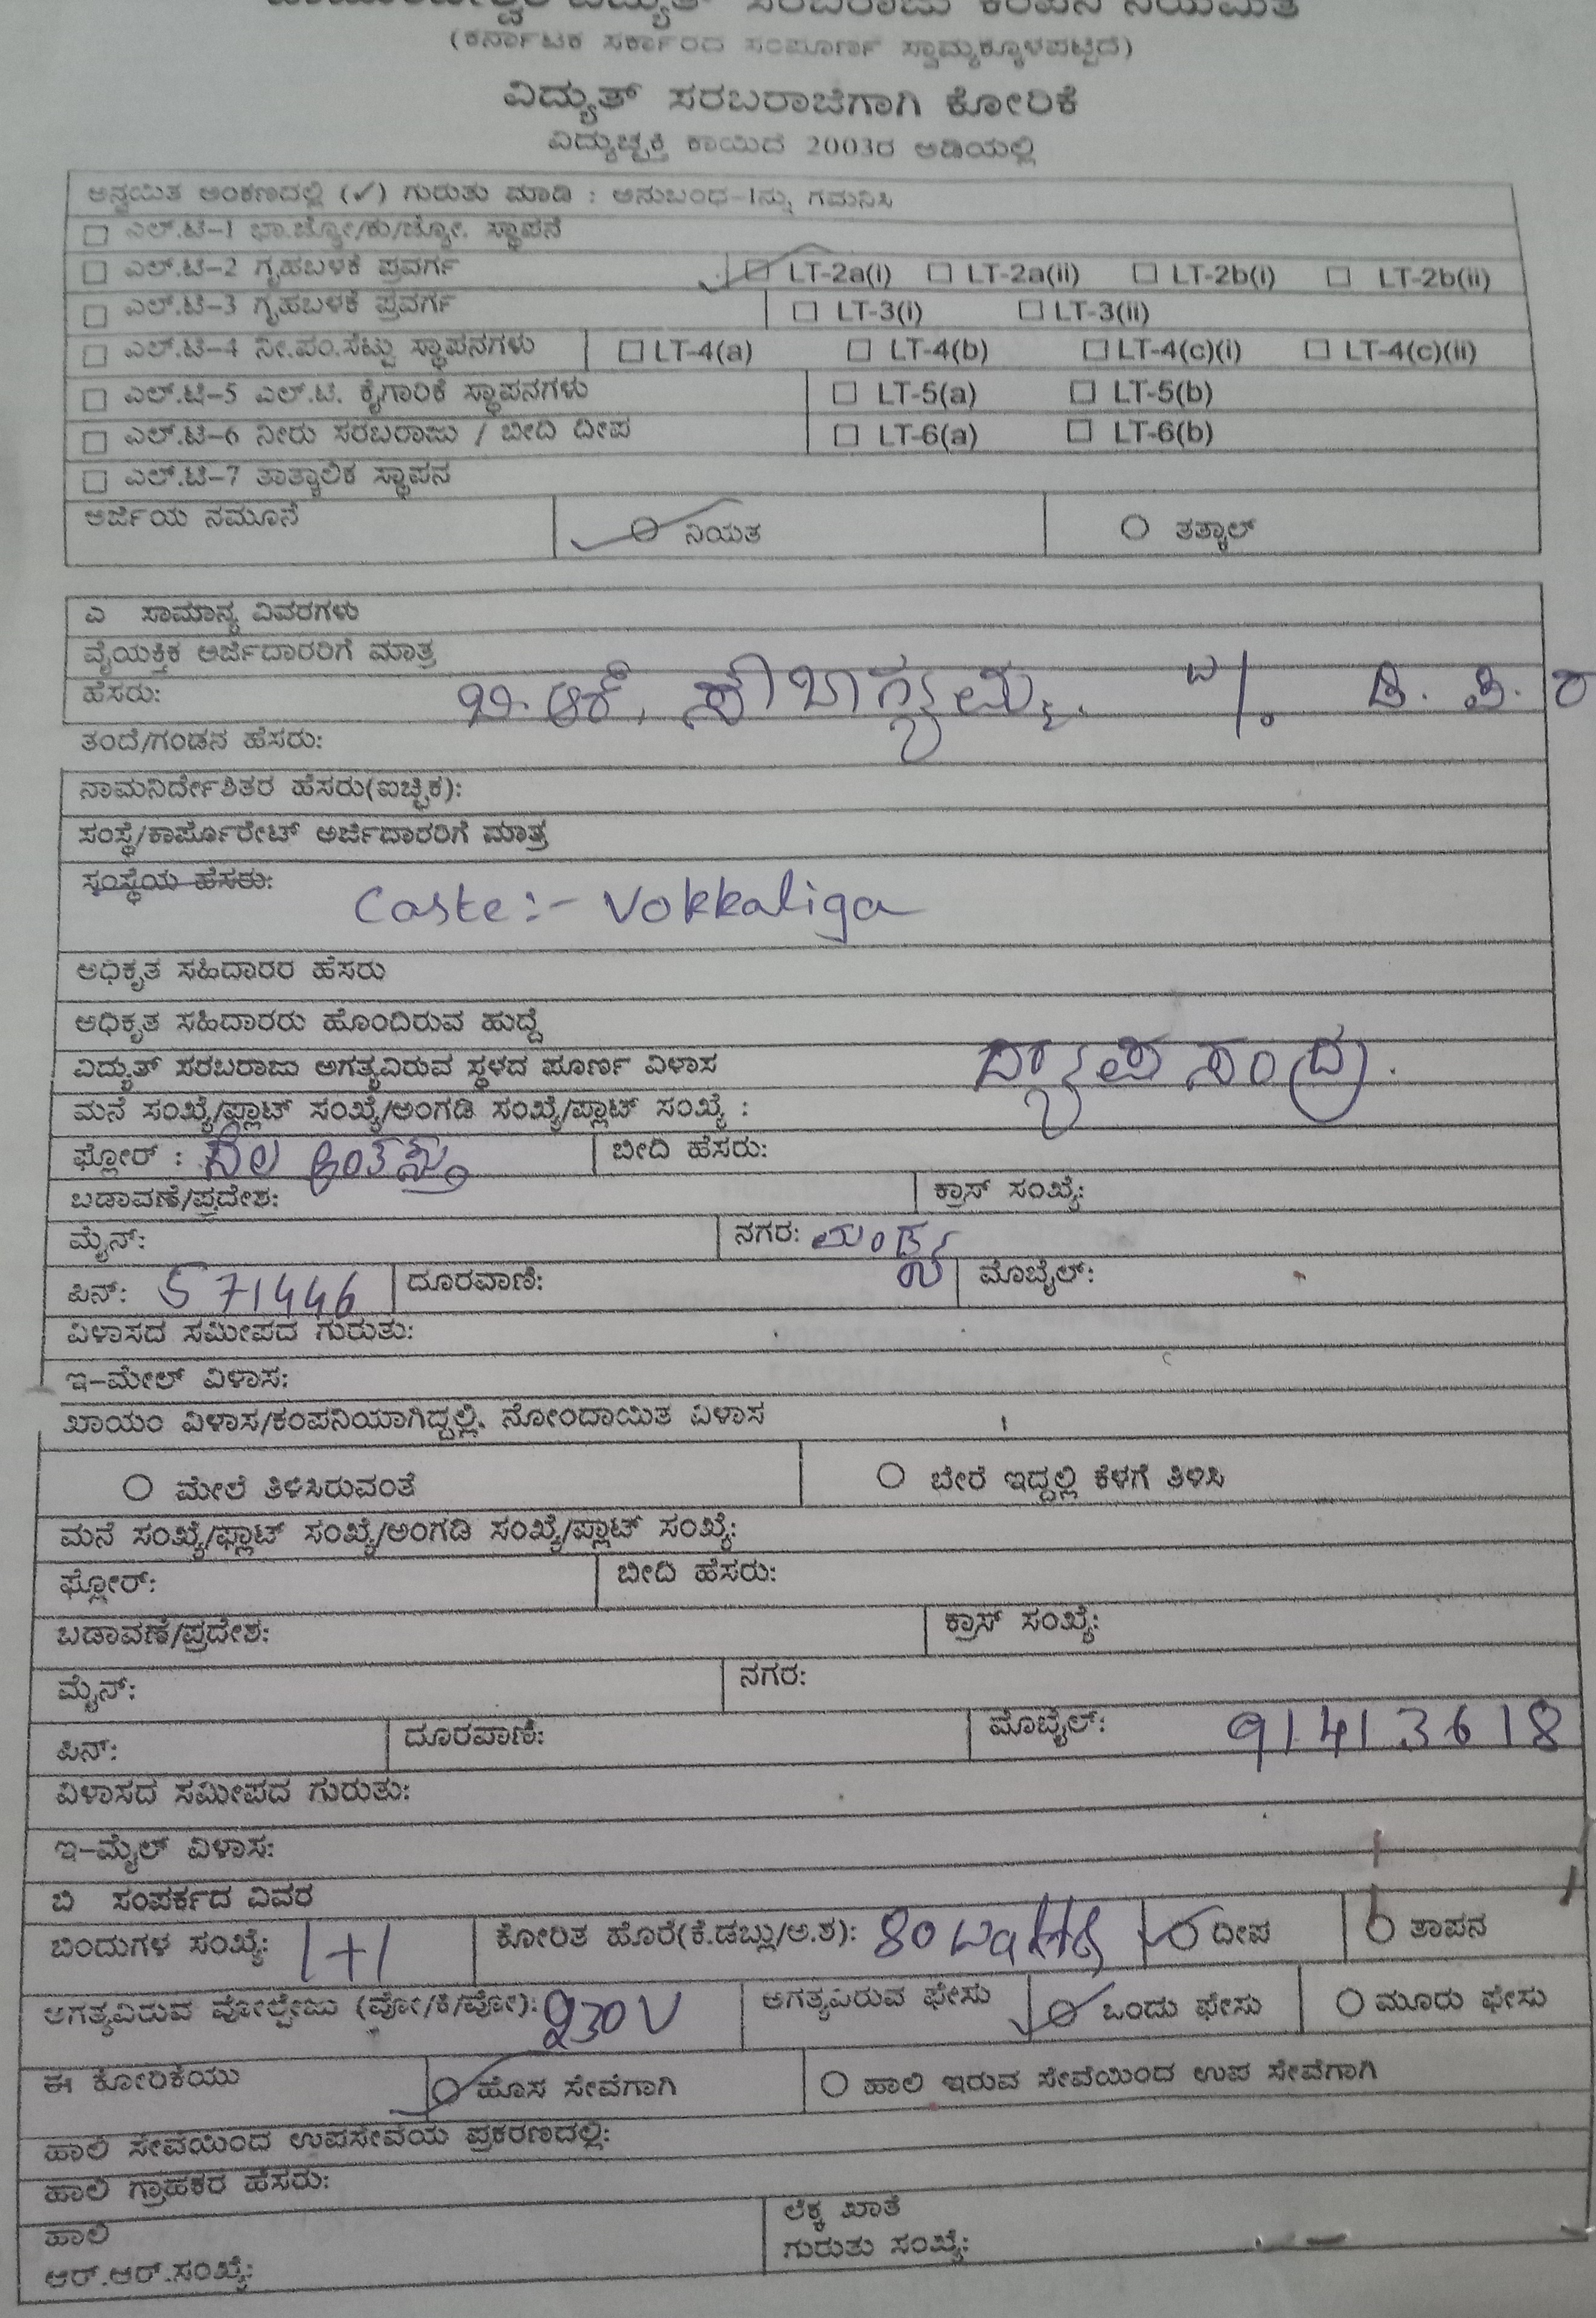 ವಿದ್ಯುತ್ ಸರಬರಾಜು ಕಂಪನಿ ನಿಯಮಿತ
(ಕರ್ನಾಟಕ ಸರ್ಕಾರದ ಸಂಪೂರ್ಣ ಸ್ವಾಮ್ಯಕ್ಕೊಳಪಟ್ಟಿದೆ)
ವಿದ್ಯುತ್ ಸರಬರಾಜಿಗಾಗಿ ಕೋರಿಕೆ
ವಿದ್ಯುಚ್ಛಕ್ತಿ ಕಾಯಿದೆ 2003ರ ಅಡಿಯಲ್ಲಿ
ಅನ್ವಯಿತ ಅಂಕಣದಲ್ಲಿ (✓) ಗುರುತು ಮಾಡಿ : ಅನುಬಂಧ-1ನ್ನು ಗಮನಿಸಿ
ಎಲ್.ಟಿ-1 ಭಾ.ಜ್ಯೋ/ಕು/ಜ್ಯೋ. ಸ್ಥಾಪನೆ
ಎಲ್.ಟಿ-2 ಗೃಹಬಳಕೆ ಪ್ರವರ್ಗ LT-2a(i) LT-2a(ii) LT-2b(i) LT-2b(ii)
ಎಲ್.ಟಿ-3 ಗೃಹಬಳಕೆ ಪ್ರವರ್ಗ LT-3(i) LT-3(ii)
ಎಲ್.ಟಿ-4 ನೀ.ಪಂ.ಸೆಟ್ಟು ಸ್ಥಾಪನಗಳು LT-4(a) LT-4(b) LT-4(c)(i) LT-4(c)(ii)
ಎಲ್.ಟಿ-5 ಎಲ್.ಟಿ. ಕೈಗಾರಿಕೆ ಸ್ಥಾಪನಗಳು LT-5(a) LT-5(b)
ಎಲ್.ಟಿ-6 ನೀರು ಸರಬರಾಜು / ಬೀದಿ ದೀಪ LT-6(a) LT-6(b)
ಎಲ್.ಟಿ-7 ತಾತ್ಕಾಲಿಕ ಸ್ಥಾಪನ
ಅರ್ಜಿಯ ನಮೂನೆ ನಿಯತ ತತ್ಕಾಲ್
ಎ ಸಾಮಾನ್ಯ ವಿವರಗಳು
ವೈಯಕ್ತಿಕ ಅರ್ಜಿದಾರರಿಗೆ ಮಾತ್ರ
ಹೆಸರು: ಬಿ.ಆರ್.
ತಂದೆ/ಗಂಡನ ಹೆಸರು:
ನಾಮನಿರ್ದೇಶಿತರ ಹೆಸರು(ಐಚ್ಛಿಕ):
ಸಂಸ್ಥೆ/ಕಾರ್ಪೊರೇಟ್ ಅರ್ಜಿದಾರರಿಗೆ ಮಾತ್ರ
ಸಂಸ್ಥೆಯ ಹೆಸರು: Caste:- Vokkaliga
ಅಧಿಕೃತ ಸಹಿದಾರರ ಹೆಸರು
ಅಧಿಕೃತ ಸಹಿದಾರರು ಹೊಂದಿರುವ ಹುದ್ದೆ
ವಿದ್ಯುತ್ ಸರಬರಾಜು ಅಗತ್ಯವಿರುವ ಸ್ಥಳದ ಪೂರ್ಣ ವಿಳಾಸ ದ್ಯಾಪಸಂದ್ರ.
ಮನೆ ಸಂಖ್ಯೆ/ಫ್ಲಾಟ್ ಸಂಖ್ಯೆ/ಅಂಗಡಿ ಸಂಖ್ಯೆ/ಪ್ಲಾಟ್ ಸಂಖ್ಯೆ :
ಫ್ಲೋರ್ : ನೆಲ ಅಂತಸ್ತು ಬೀದಿ ಹೆಸರು:
ಬಡಾವಣೆ/ಪ್ರದೇಶ: ಕ್ರಾಸ್ ಸಂಖ್ಯೆ:
ಮೈನ್: ನಗರ: ಮಂಡ್ಯ
ಪಿನ್: 571446 ದೂರವಾಣಿ: ಮೊಬೈಲ್:
ವಿಳಾಸದ ಸಮೀಪದ ಗುರುತು:
ಇ-ಮೇಲ್ ವಿಳಾಸ:
ಖಾಯಂ ವಿಳಾಸ/ಕಂಪನಿಯಾಗಿದ್ದಲ್ಲಿ, ನೋಂದಾಯಿತ ವಿಳಾಸ
ಮೇಲೆ ತಿಳಿಸಿರುವಂತೆ ಬೇರೆ ಇದ್ದಲ್ಲಿ ಕೆಳಗೆ ತಿಳಿಸಿ
ಮನೆ ಸಂಖ್ಯೆ/ಫ್ಲಾಟ್ ಸಂಖ್ಯೆ/ಅಂಗಡಿ ಸಂಖ್ಯೆ/ಪ್ಲಾಟ್ ಸಂಖ್ಯೆ:
ಫ್ಲೋರ್: ಬೀದಿ ಹೆಸರು:
ಬಡಾವಣೆ/ಪ್ರದೇಶ: ಕ್ರಾಸ್ ಸಂಖ್ಯೆ:
ಮೈನ್: ನಗರ:
ಪಿನ್: ದೂರವಾಣಿ: ಮೊಬೈಲ್: 91413618
ವಿಳಾಸದ ಸಮೀಪದ ಗುರುತು:
ಇ-ಮೈಲ್ ವಿಳಾಸ:
ಬಿ ಸಂಪರ್ಕದ ವಿವರ
ಬಿಂದುಗಳ ಸಂಖ್ಯೆ: 1+1 ಕೋರಿತ ಹೊರೆ(ಕೆ.ಡಬ್ಲು/ಅ.ಶ): 80 watts ದೀಪ ತಾಪನ
ಅಗತ್ಯವಿರುವ ವೋಲ್ಟೇಜು (ವೋ/ಕಿ/ವೋ): 230 V ಅಗತ್ಯವಿರುವ ಫೇಸು ಒಂದು ಫೇಸು ಮೂರು ಫೇಸು
ಈ ಕೋರಿಕೆಯು ಹೊಸ ಸೇವೆಗಾಗಿ ಹಾಲಿ ಇರುವ ಸೇವೆಯಿಂದ ಉಪ ಸೇವೆಗಾಗಿ
ಹಾಲಿ ಸೇವೆಯಿಂದ ಉಪಸೇವೆಯ ಪ್ರಕರಣದಲ್ಲಿ:
ಹಾಲಿ ಗ್ರಾಹಕರ ಹೆಸರು:
ಹಾಲಿ ಲೆಕ್ಕ ಖಾತೆ
ಆರ್.ಆರ್.ಸಂಖ್ಯೆ: ಗುರುತು ಸಂಖ್ಯೆ: